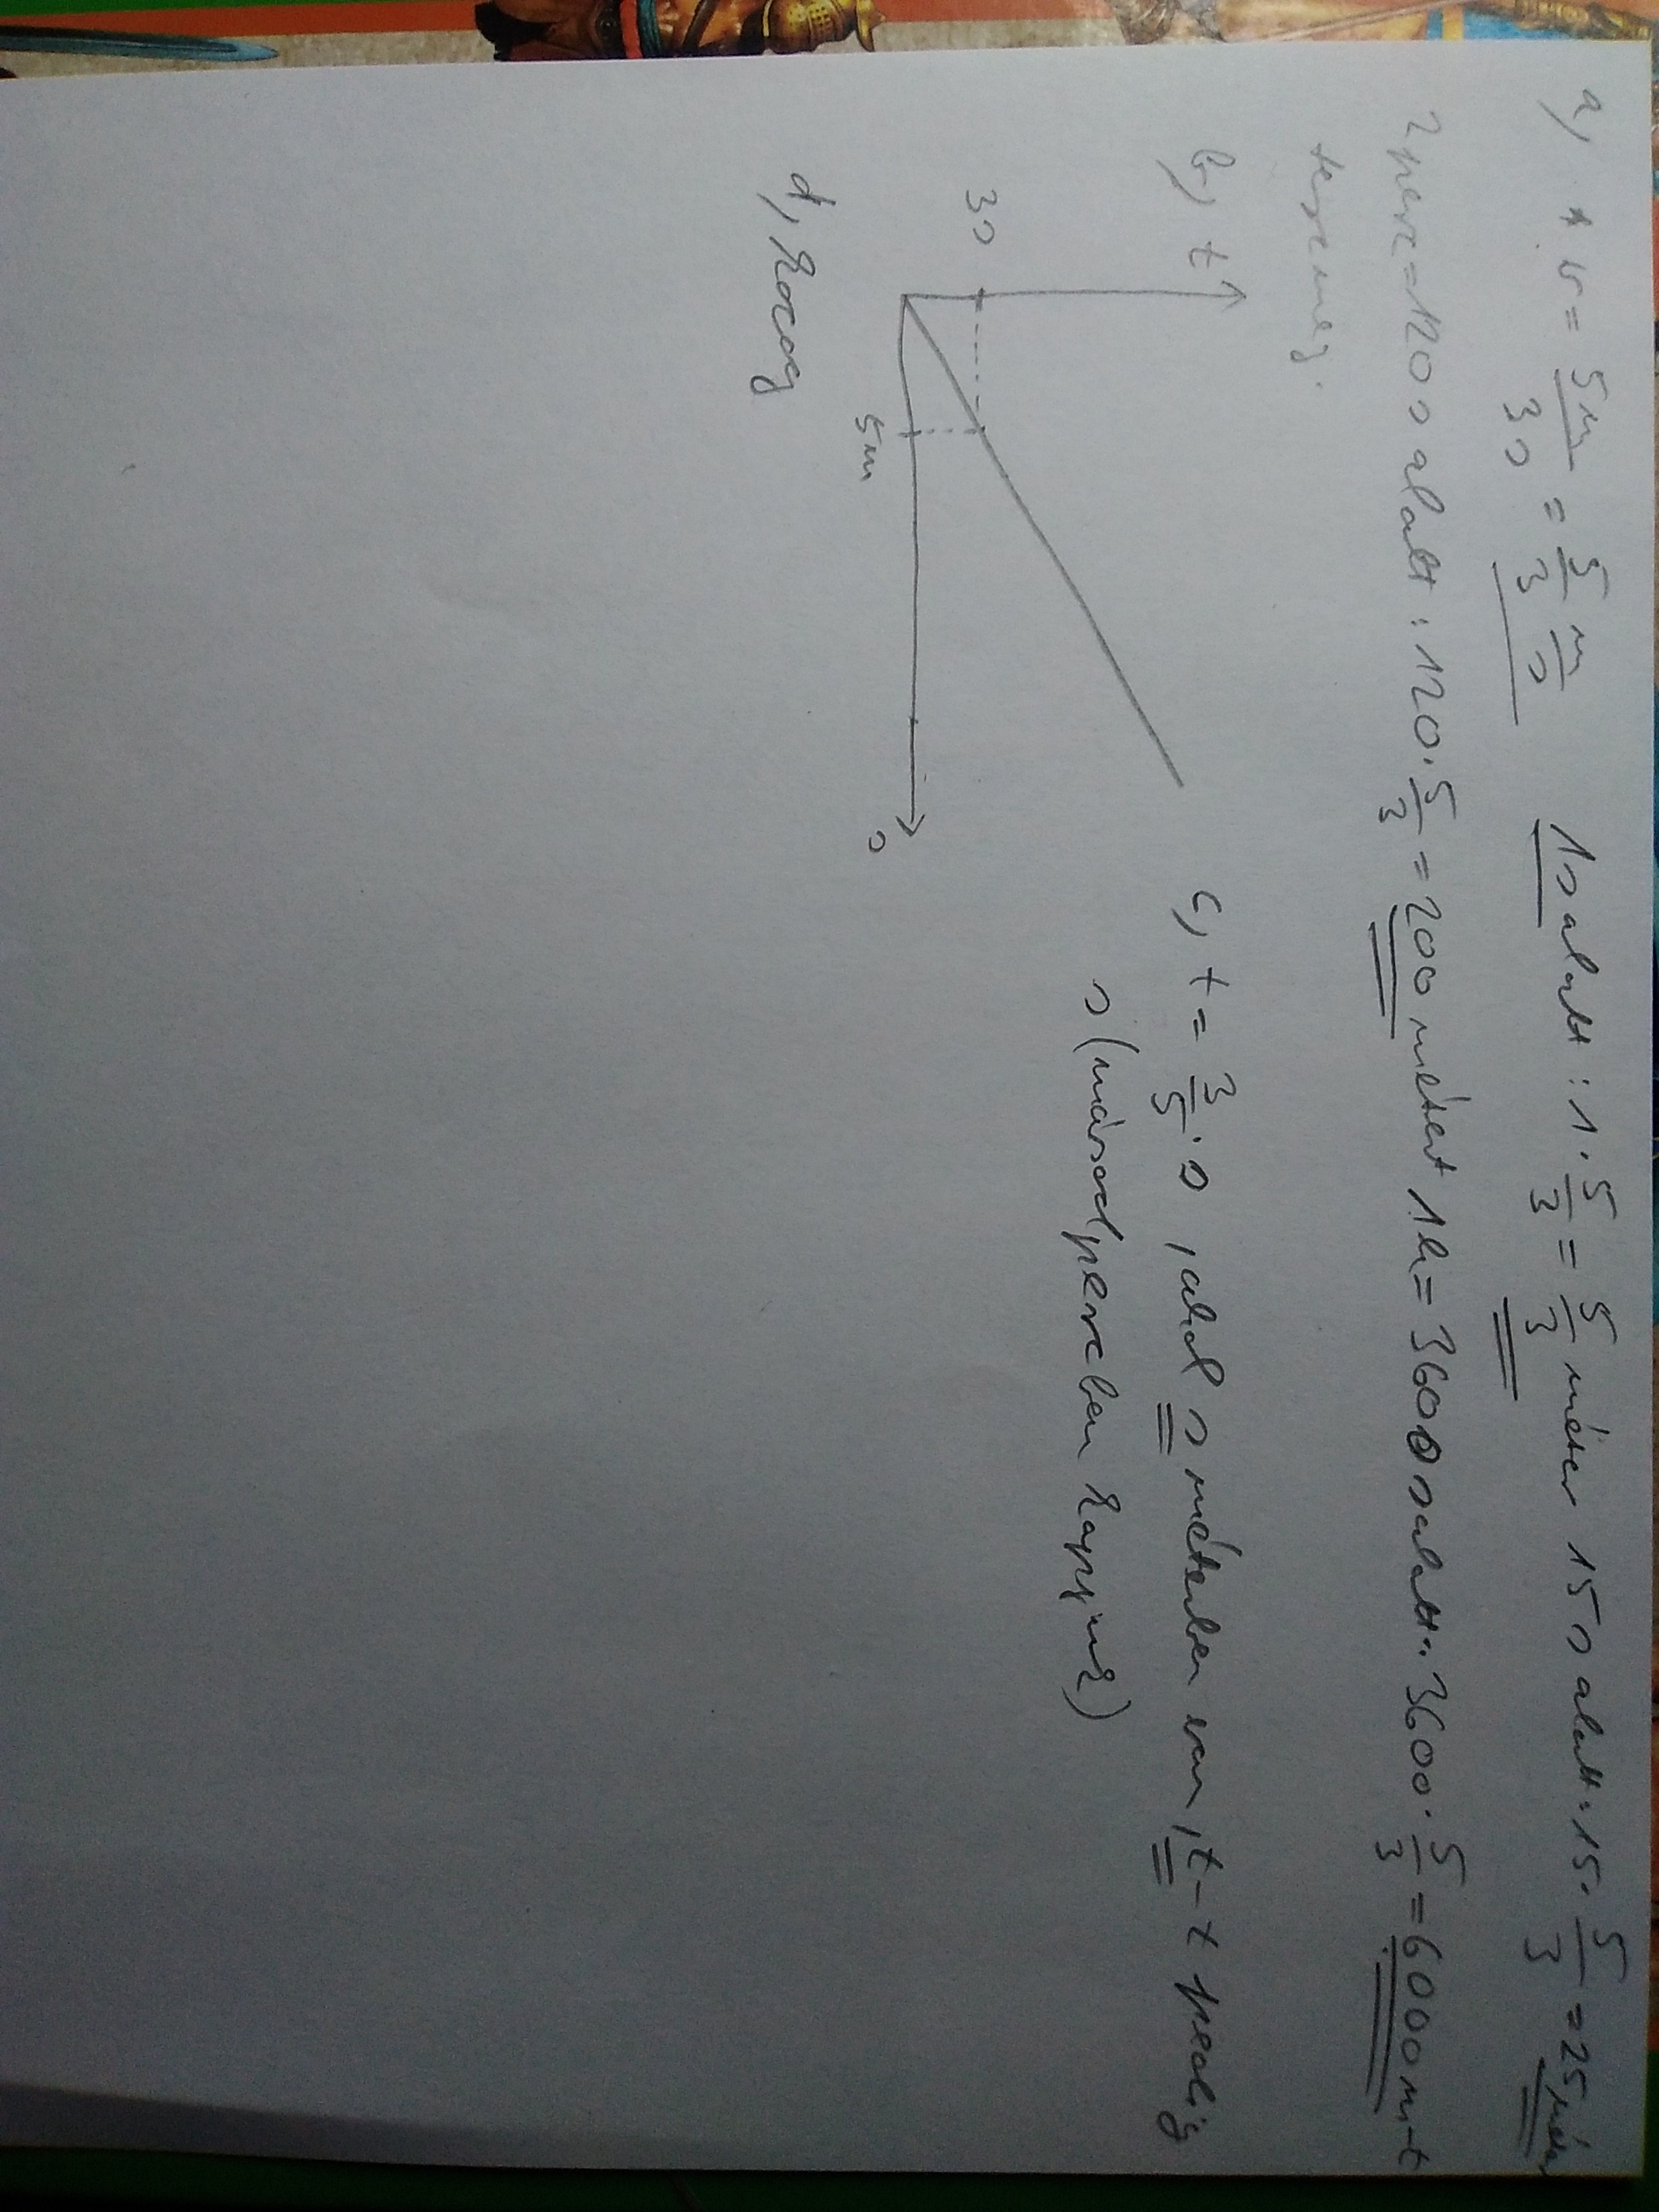 a, v = 5m/3s = 5/3 m/s 1s alatt: 1·5/3 = 5/3 méter 15s alatt: 15·5/3 = 25 méter
2 perc = 120s alatt: 120·5/3 = 200 métert 1h = 3600s alatt: 3600·5/3 = 6000 m-t
tesz meg.
b, t
c, t = 3/5·s, ahol s méterben van, t-t pedig
s (másodpercben kapjuk)
3s
5m
s
d, kocog